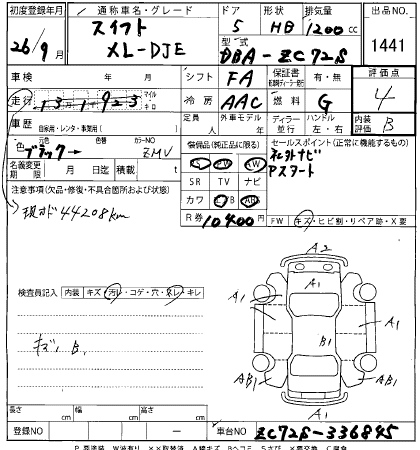 初度登録年月 通称車名・グレード ドア 形状 排気量 出品NO.
26/9月 スイフト XL-DJE 5 HB 1200cc 1441
型式 DBA-ZC72S
車検 年 月 シフト FA 保証書 有・無 評価点
走行 マイル 4
冷房 AAC 燃料 G
車歴 自家用・レンタ・事業用( ) 定員 人 外車モデル 年 ディーラー 並行 ハンドル 左・右 内装 B
色 元色 ブラック→ 色替 カラーNO ZMV
装備品(純正品に限る) セールスポイント(正常に機能するもの)
名義変更期限 月 日迄 積載 t
SR TV ナビ
Pスタート
注意事項(欠品・修復・不具合箇所および状態)
カワ
現メーカ 44208km
R券 10400円
FW キズ・ヒビ割・リペア跡・X要
A2
A1
検査員記入 内装 キズ・汚レ・コゲ・穴・キレ
A1 A1
B1
キズ. B.
AB1 AB1
A1
長さ cm 幅 cm 高さ cm
登録NO - 車台NO. ZC72S-336845